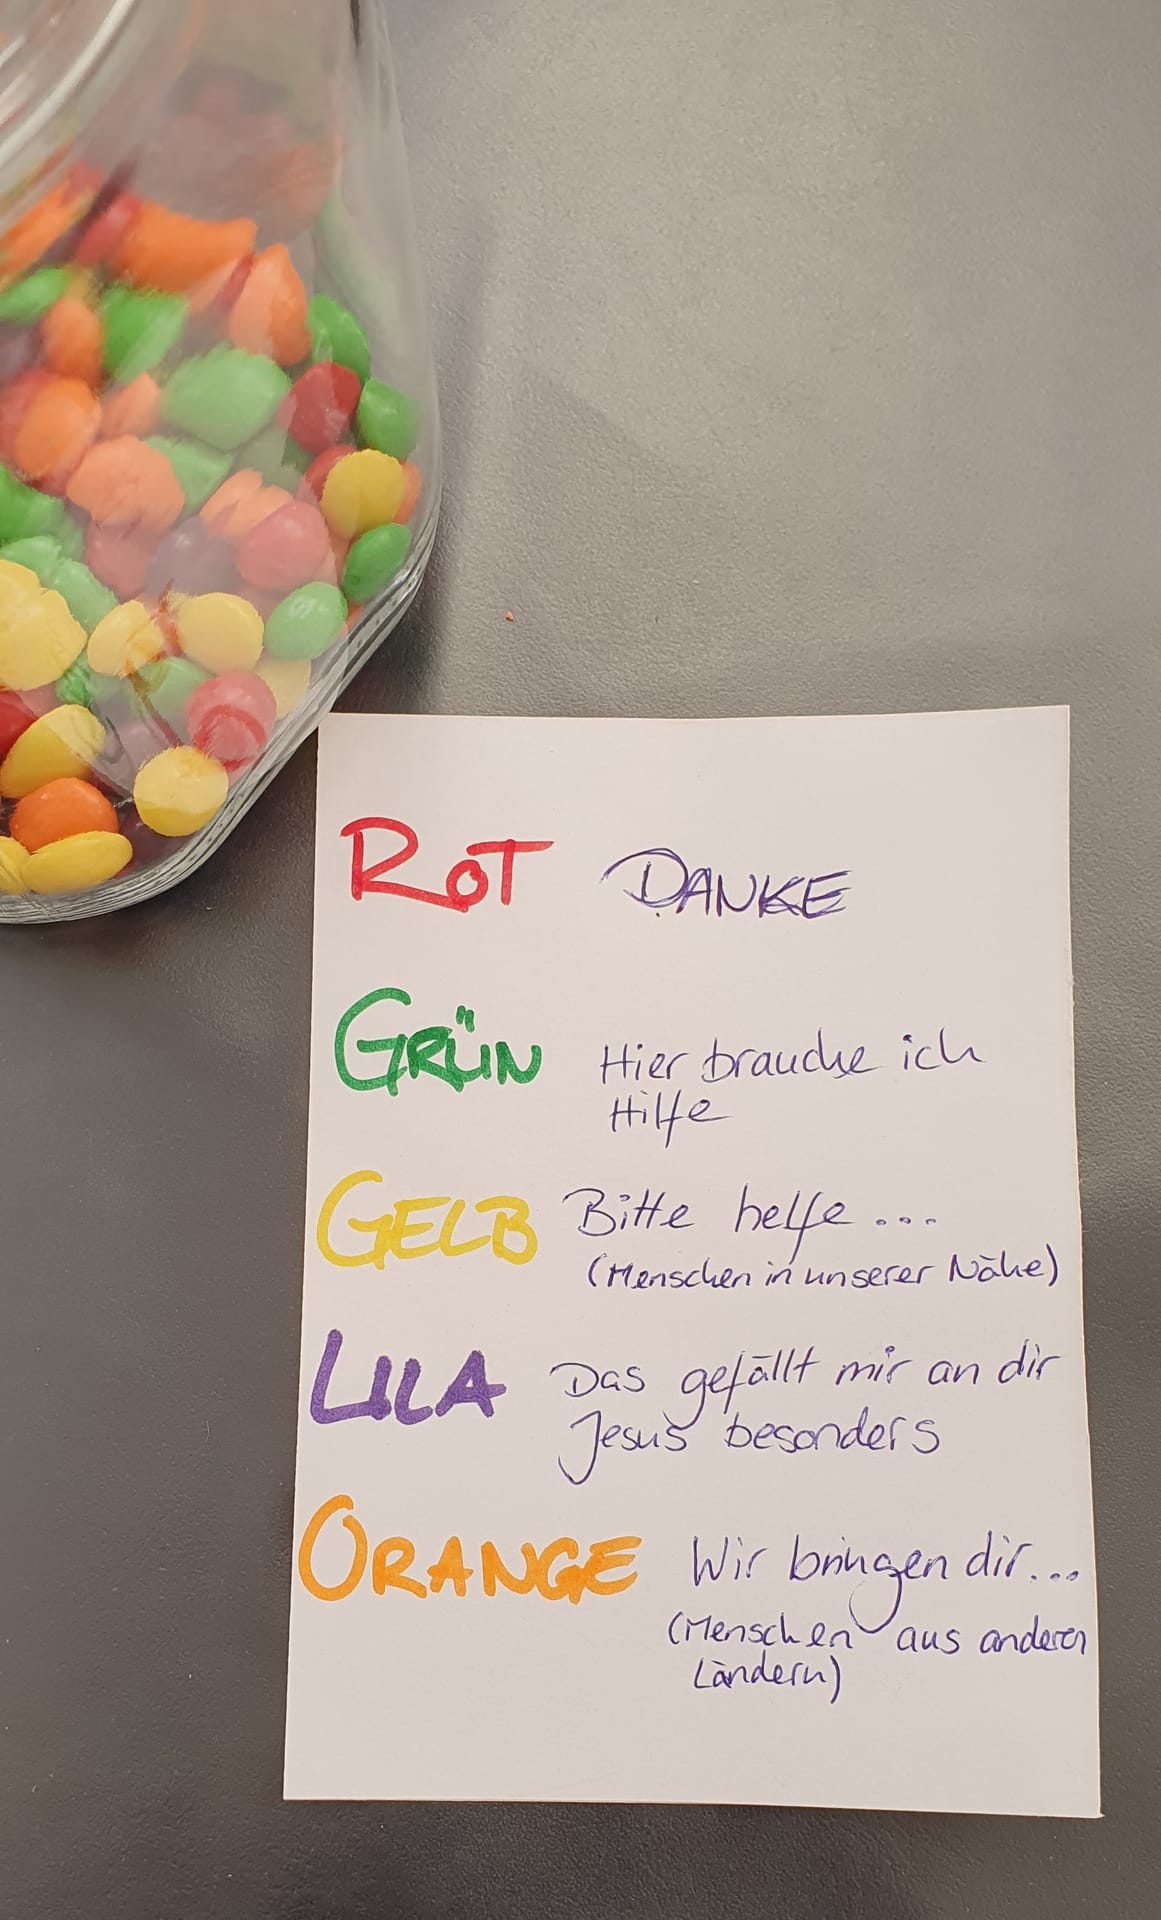 ROT DANKE
GRÜN Hier brauche ich
Hilfe
GELB Bitte helfe ...
(Menschen in unserer Nähe)
LILA Das gefällt mir an dir
Jesus besonders
ORANGE Wir bringen dir...
(Menschen aus anderen
Ländern)